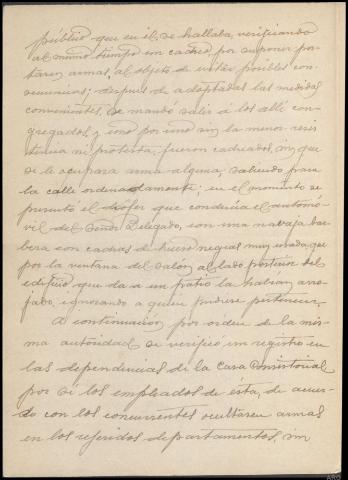 público que en él se hallaba, verificando
al mismo tiempo un cacheo por suponer por-
taren armas, al objeto de evitar posibles con-
secuencias; despues de adoptadas las medidas
convenientes, se mandó salir á los allí con-
gregados, y uno por uno sin la menor resis-
tencia ni protesta, fueron cacheados, sin que
se le ocupara arma alguna, saliendo para
la calle ordenadamente; en el momento se
presentó el chófer que conducía el automo-
vil del Señor Delegado, con una navaja bar-
bera con cachas de hueso negras, muy usada, que
por la ventana del salón al lado posterior del
edificio que da a un patio la habían arro-
jado, ignorando a quien pudiese pertenecer.
A continuación por orden de la mis-
ma autoridad se verificó un registro en
las dependencias de la Casa Consistorial
por si los empleados de ésta, de acuer-
do con los concurrentes ocultasen armas
en los referidos departamentos, sin